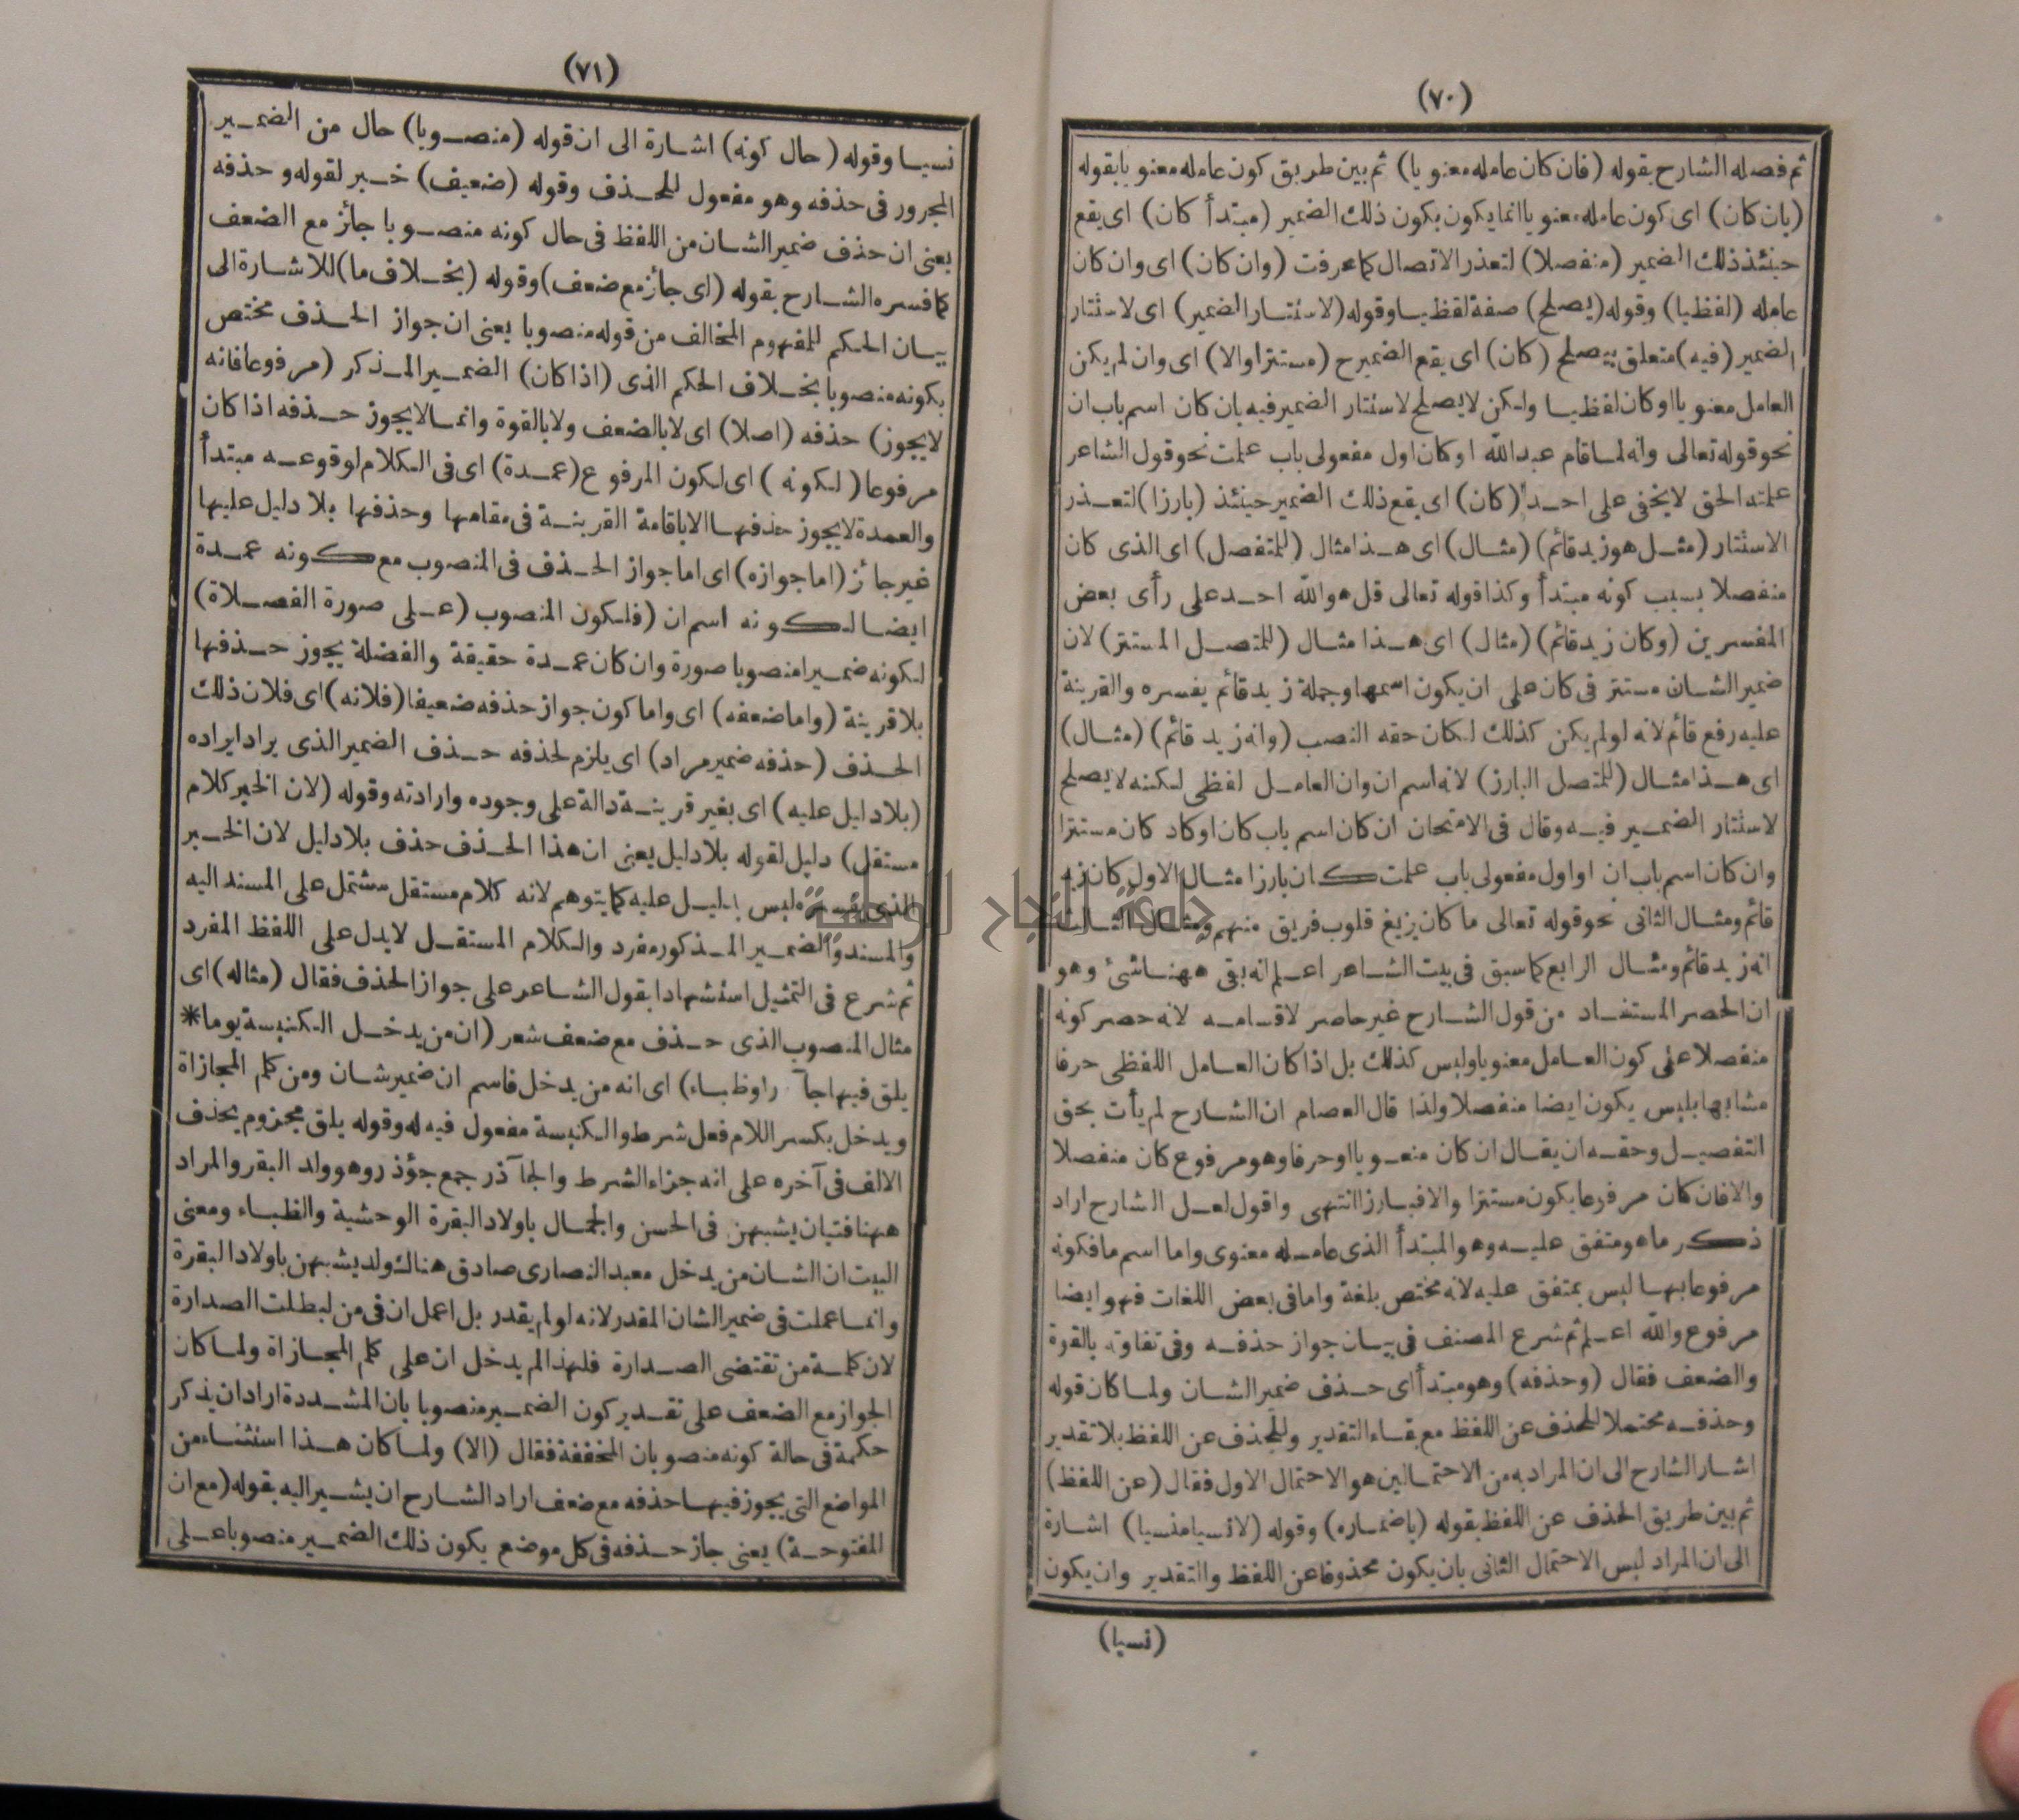 (٧٠)
ثم فصله الشارح بقوله (فان كان عامله معنويا) ثم بين طريق كون عامله معنويا بقوله
(بان كان) اى كون عامله معنويا انما يكون بكون ذلك الضمير (مبتدأ كان) اى يقع
حينئذ ذلك الضمير (منفصلا) لتعذر الاتصال كما عرفت (وان كان) اى وان كان
عامله (لفظيا) وقوله (يصلح) صفة لفظيا وقوله (لاستتار الضمير) اى لاستتار
الضمير (فيه) متعلق بيصلح (كان) اى يقع الضمير ح (مستترا والا) اى وان لم يكن
العامل معنويا او كان لفظيا ولكن لا يصلح لاستتار الضمير فيه بان كان اسم باب ان
نحو قوله تعالى وانه لما قام عبد الله او كان اول مفعولى باب علمت نحو قول الشاعر
علمته الحق لا يخفى على احد (كان) اى يقع ذلك الضمير حينئذ (بارزا) لتعذر
الاستتار (مثل هو زيد قائم) (مثال) اى هذا مثال (للمنفصل) اى الذى كان
منفصلا بسبب كونه مبتدأ وكذا قوله تعالى قل هو الله احد على رأى بعض
المفسرين (وكان زيد قائم) (مثال) اى هذا مثال (للمتصل المستتر) لان
ضمير الشان مستتر فى كان على ان يكون اسمها وجملة زيد قائم يفسره والقرينة
عليه رفع قائم لانه لو لم يكن كذلك لكان حقه النصب (وانه زيد قائم) (مثال)
اى هذا مثال (للمتصل البارز) لانه اسم ان وان العامل لفظى لكنه لا يصلح
لاستتار الضمير فيه وقال فى الامتحان ان كان اسم باب كان او كاد كان مستترا
وان كان اسم باب ان او اول مفعولى باب علمت كان بارزا مثال الاول كان زيد
قائم ومثال الثانى نحو قوله تعالى ما كان يزيغ قلوب فريق منهم ومثال الثالث
انه زيد قائم ومثال الرابع كما سبق فى بيت الشاعر اعلم انه بقى ههنا شئ وهو
ان الحصر المستفاد من قول الشارح غير حاصر لاقسامه لانه حصر كونه
منفصلا على كون العامل معنويا وليس كذلك بل اذا كان العامل اللفظى حرفا
مشابها بليس يكون ايضا منفصلا ولذا قال العصام ان الشارح لم يأت بحق
التفصيل وحقه ان يقال ان كان منعويا او حرفا وهو مرفوع كان منفصلا
والا فان كان مرفوعا يكون مستترا والا فبارزا انتهى واقول لعل الشارح اراد
ذكر ما هو متفق عليه وهو المبتدأ الذى عامله معنوى واما اسم ما فكونه
مرفوعا بها ليس بمتفق عليه لانه مختص بلغة واما فى بعض اللغات فهو ايضا
مرفوع والله اعلم ثم شرع المصنف فى بيان جواز حذفه وفى تفاوته بالقوة
والضعف فقال (وحذفه) وهو مبتدأ اى حذف ضمير الشان ولما كان قوله
وحذفه محتملا للحذف عن اللفظ مع بقاء التقدير وللحذف عن اللفظ بلا تقدير
اشار الشارح الى ان المراد به من الاحتمالين هو الاحتمال الاول فقال (عن اللفظ)
ثم بين طريق الحذف عن اللفظ بقوله (باضماره) وقوله (لا نسيا منسيا) اشارة
الى ان المراد ليس الاحتمال الثانى بان يكون محذوفا عن اللفظ والتقدير وان يكون
(نسيا)
(٧١)
نسيا وقوله (حال كونه) اشارة الى ان قوله (منصوبا) حال من الضمير
المجرور فى حذفه وهو مفعول للحذف وقوله (ضعيف) خبر لقوله وحذفه
يعنى ان حذف ضمير الشان من اللفظ فى حال كونه منصوبا جائز مع الضعف
كما فسره الشارح بقوله (اى جائز مع ضعف) وقوله (بخلاف ما) للاشارة الى
بيان الحكم للمفهوم المخالف من قوله منصوبا يعنى ان جواز الحذف مختص
بكونه منصوبا بخلاف الحكم الذى (اذا كان) الضمير المذكر (مرفوعا فانه
لا يجوز) حذفه (اصلا) اى لا بالضعف ولا بالقوة وانما لا يجوز حذفه اذا كان
مرفوعا (لكونه) اى لكون المرفوع (عمدة) اى فى الكلام لوقوعه مبتدأ
والعمدة لا يجوز حذفها الا باقامة القرينة فى مقامها وحذفها بلا دليل عليها
غير جائز (اما جوازه) اى اما جواز الحذف فى المنصوب مع كونه عمدة
ايضا لكونه اسم ان (فلكون المنصوب (على صورة الفصلاة)
لكونه ضميرا منصوبا صورة وان كان عمدة حقيقة والفضلة يجوز حذفها
بلا قرينة (واما ضعفه) اى واما كون جواز حذفه ضعيفا (فلانه) اى فلان ذلك
الحذف (حذفه ضمير مراد) اى يلزم لحذفه حذف الضمير الذى يراد ايراده
(بلا دليل عليه) اى بغير قرينة دالة على وجوده وارادته وقوله (لان الخبر كلام
مستقل) دليل لقوله بلا دليل يعنى ان هذا الحذف حذف بلا دليل لان الخبر
الذى يفسره ليس بدليل عليه كما يتوهم لانه كلام مستقل مشتمل على المسند اليه
والمسند والضمير المذكور مفرد والكلام المستقل لا يدل على اللفظ المفرد
ثم شرع فى التمثيل استشهادا بقول الشاعر على جواز الحذف فقال (مثاله) اى
مثال المنصوب الذى حذف مع ضعف شعر (ان من يدخل الكنيسة يوما *
يلق فيها جآ راوظباء) اى انه من يدخل فاسم ان ضمير شان ومن كلم المجازاة
ويدخل بكسر اللام فعل شرط والكنيسة مفعول فيه له وقوله يلق مجزوم بحذف
الالف فى آخره على انه جزاء الشرط والجآ ذر جمع جؤذر وهو ولد البقر والمراد
ههنا فتيان يشبهن فى الحسن والجمال باولاد البقرة الوحشية والظباء ومعنى
البيت ان الشان من يدخل معبد النصارى صادق هناك ولد يشبهن باولاد البقرة
وانما عملت فى ضمير الشان المقدر لانه لو لم يقدر بل اعمل ان فى من لبطلت الصدارة
لان كلمة من تقتضى الصدارة فلهذا لم يدخل ان على كلم المجازاة ولما كان
الجواز مع الضعف على تقدير كون الضمير منصوبا بان المشددة اراد ان يذكر
حكمة فى حالة كونه منصوبان المخففة فقال (الا) ولما كان هذا استثناء من
المواضع التى يجوز فيها حذفه مع ضعف اراد الشارح ان يشير اليه بقوله (مع ان
المفتوحة) يعنى جاز حذفه فى كل موضع يكون ذلك الضمير منصوبا على
جامعة النجاح الوطنية